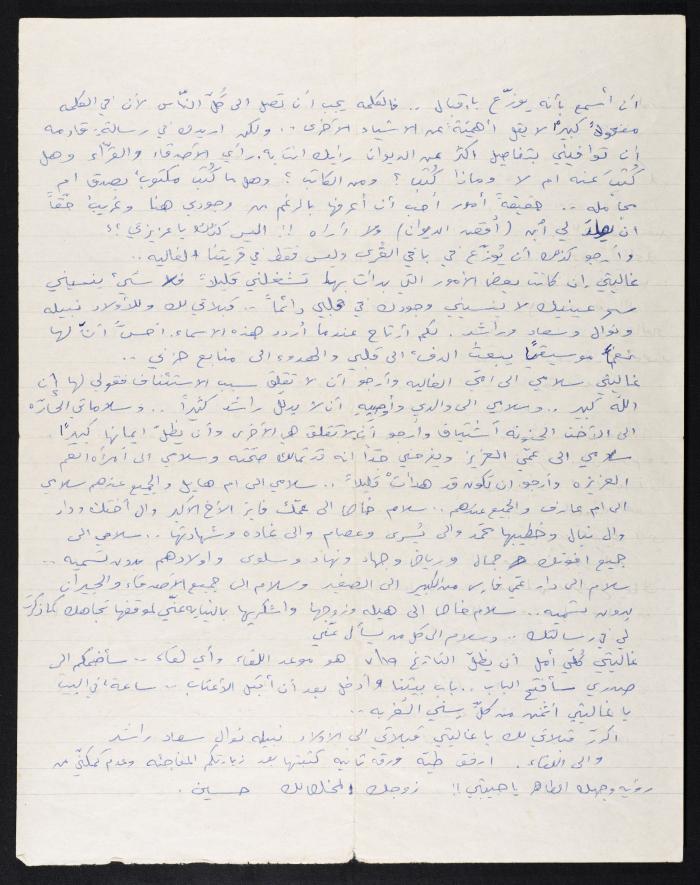 أن أسمع بأنه يوزّع باقبال .. فالكلمه يجب أن تصل الى كُلّ النّاس لأن في الكلمه
مفعولاً كبيراً لا يقل أهميّة عن الاشياء الأخرى .. ولكن اريدك في رسالة قادمه
أن توافيني بتفاصيل اكثر عن الديوان رأيك انت به. رأي الأصدقاء والقرّاء وهل
كُتب عنه ام لا وماذا كُتب؟ ومن الكاتب؟ وهل ما كُتب مكتوب بصدق ام
مجامله .. حقيقةً أمور أحب أن أعرفها بالرغم من وجودي هنا وغريب حقّاً
ان يولد لي أبن (أقصد الديوان) ولا أراه !! اليس كذلك يا عزيزتي؟؟
وأرجو كذلك أن يُوزّع في باقي القُرى وليس فقط في قريتنا الغاليه ..
غاليتي إن كانت بعض الأمور التي بدأت بها تشغلني قليلاً فلا شيء ينسيني
سحر عينيك لا ينسيني وجودك في قلبي دائماً .. قبلاتي لك وللأولاد نبيله
ونوال وسعاد وراشد. لكم أرتاح عندما أردد هذه الاسماء. أحسّ أنّ لها
نغماً موسيقيّاً يبعث الدفء الى قلبي والهدوء الى منابع حزني ..
غاليتي سلامي الى امّي الغاليه وأرجو أن لا تقلق بسبب الاستئناف فقولي لها إن
اللّه كبير .. وسلامي الى والدي وأوصيه أن لا يدلل راشد كثيراً .. وسلاماتي الحارّه
الى الأخت الحنونه أشتياق وأرجو أن لا تقلق هي الأخرى وأن يظلّ ايمانها كبيراً.
سلامي الى عمّي العزيز ويفرحني جدّاً انه قد تمالك صحّته وسلامي الى أمرأة العم
العزيزه وأرجو ان تكون قد هدأت قليلاً .. سلامي الى ام هايل والجميع عندهم سلامي
الى ام عارف والجميع عندهم .. سلام خاصّ الى عمّك فايز الأخ الأكبر وال أختك وداد
والى نبال وخطيبها محمّد والى يُسرى وعصام والى غاده وشهادتها .. سلامي الى
جميع اخوتك جمال ورياض وجهاد ونهاد وسلوى واولادهم بدون تسميه ..
سلام الى دار عمّي فارس من الكبير الى الصغير وسلام الى جميع الأصدقاء والجيران
بدون تسميه .. سلام خاصّ الى هيله وزوجها واشكريها بالنيابه عنّي لموقفها تجاهك كما ذكرت
لي في رسالتك .. وسلام الى كل من يسأل عنّي
غاليتي كُلّي أمل أن يظلّ التاريخ ٧/١٩ هو موعد اللقاء وأي لقاء .. سأضمكم الى
صدري سأفتح الباب .. باب بيتنا وأدخل بعد أن أقبّل الأعتاب .. ساعة في البيت
يا غاليتي أثمن من كلّ سِني الغُربه ..
أكرّر قبلاتي لك يا غاليتي قبلاتي الى الأولاد نبيله نوال سعاد راشد
والى اللقاء. ارفق طيّه ورقة ثانيه كتبتها بعد زيارتكم المفاجئه وعدم تمكّني من
رؤية وجهك الطاهر يا حبيبتي!! زوجك المخلص لك حسين.